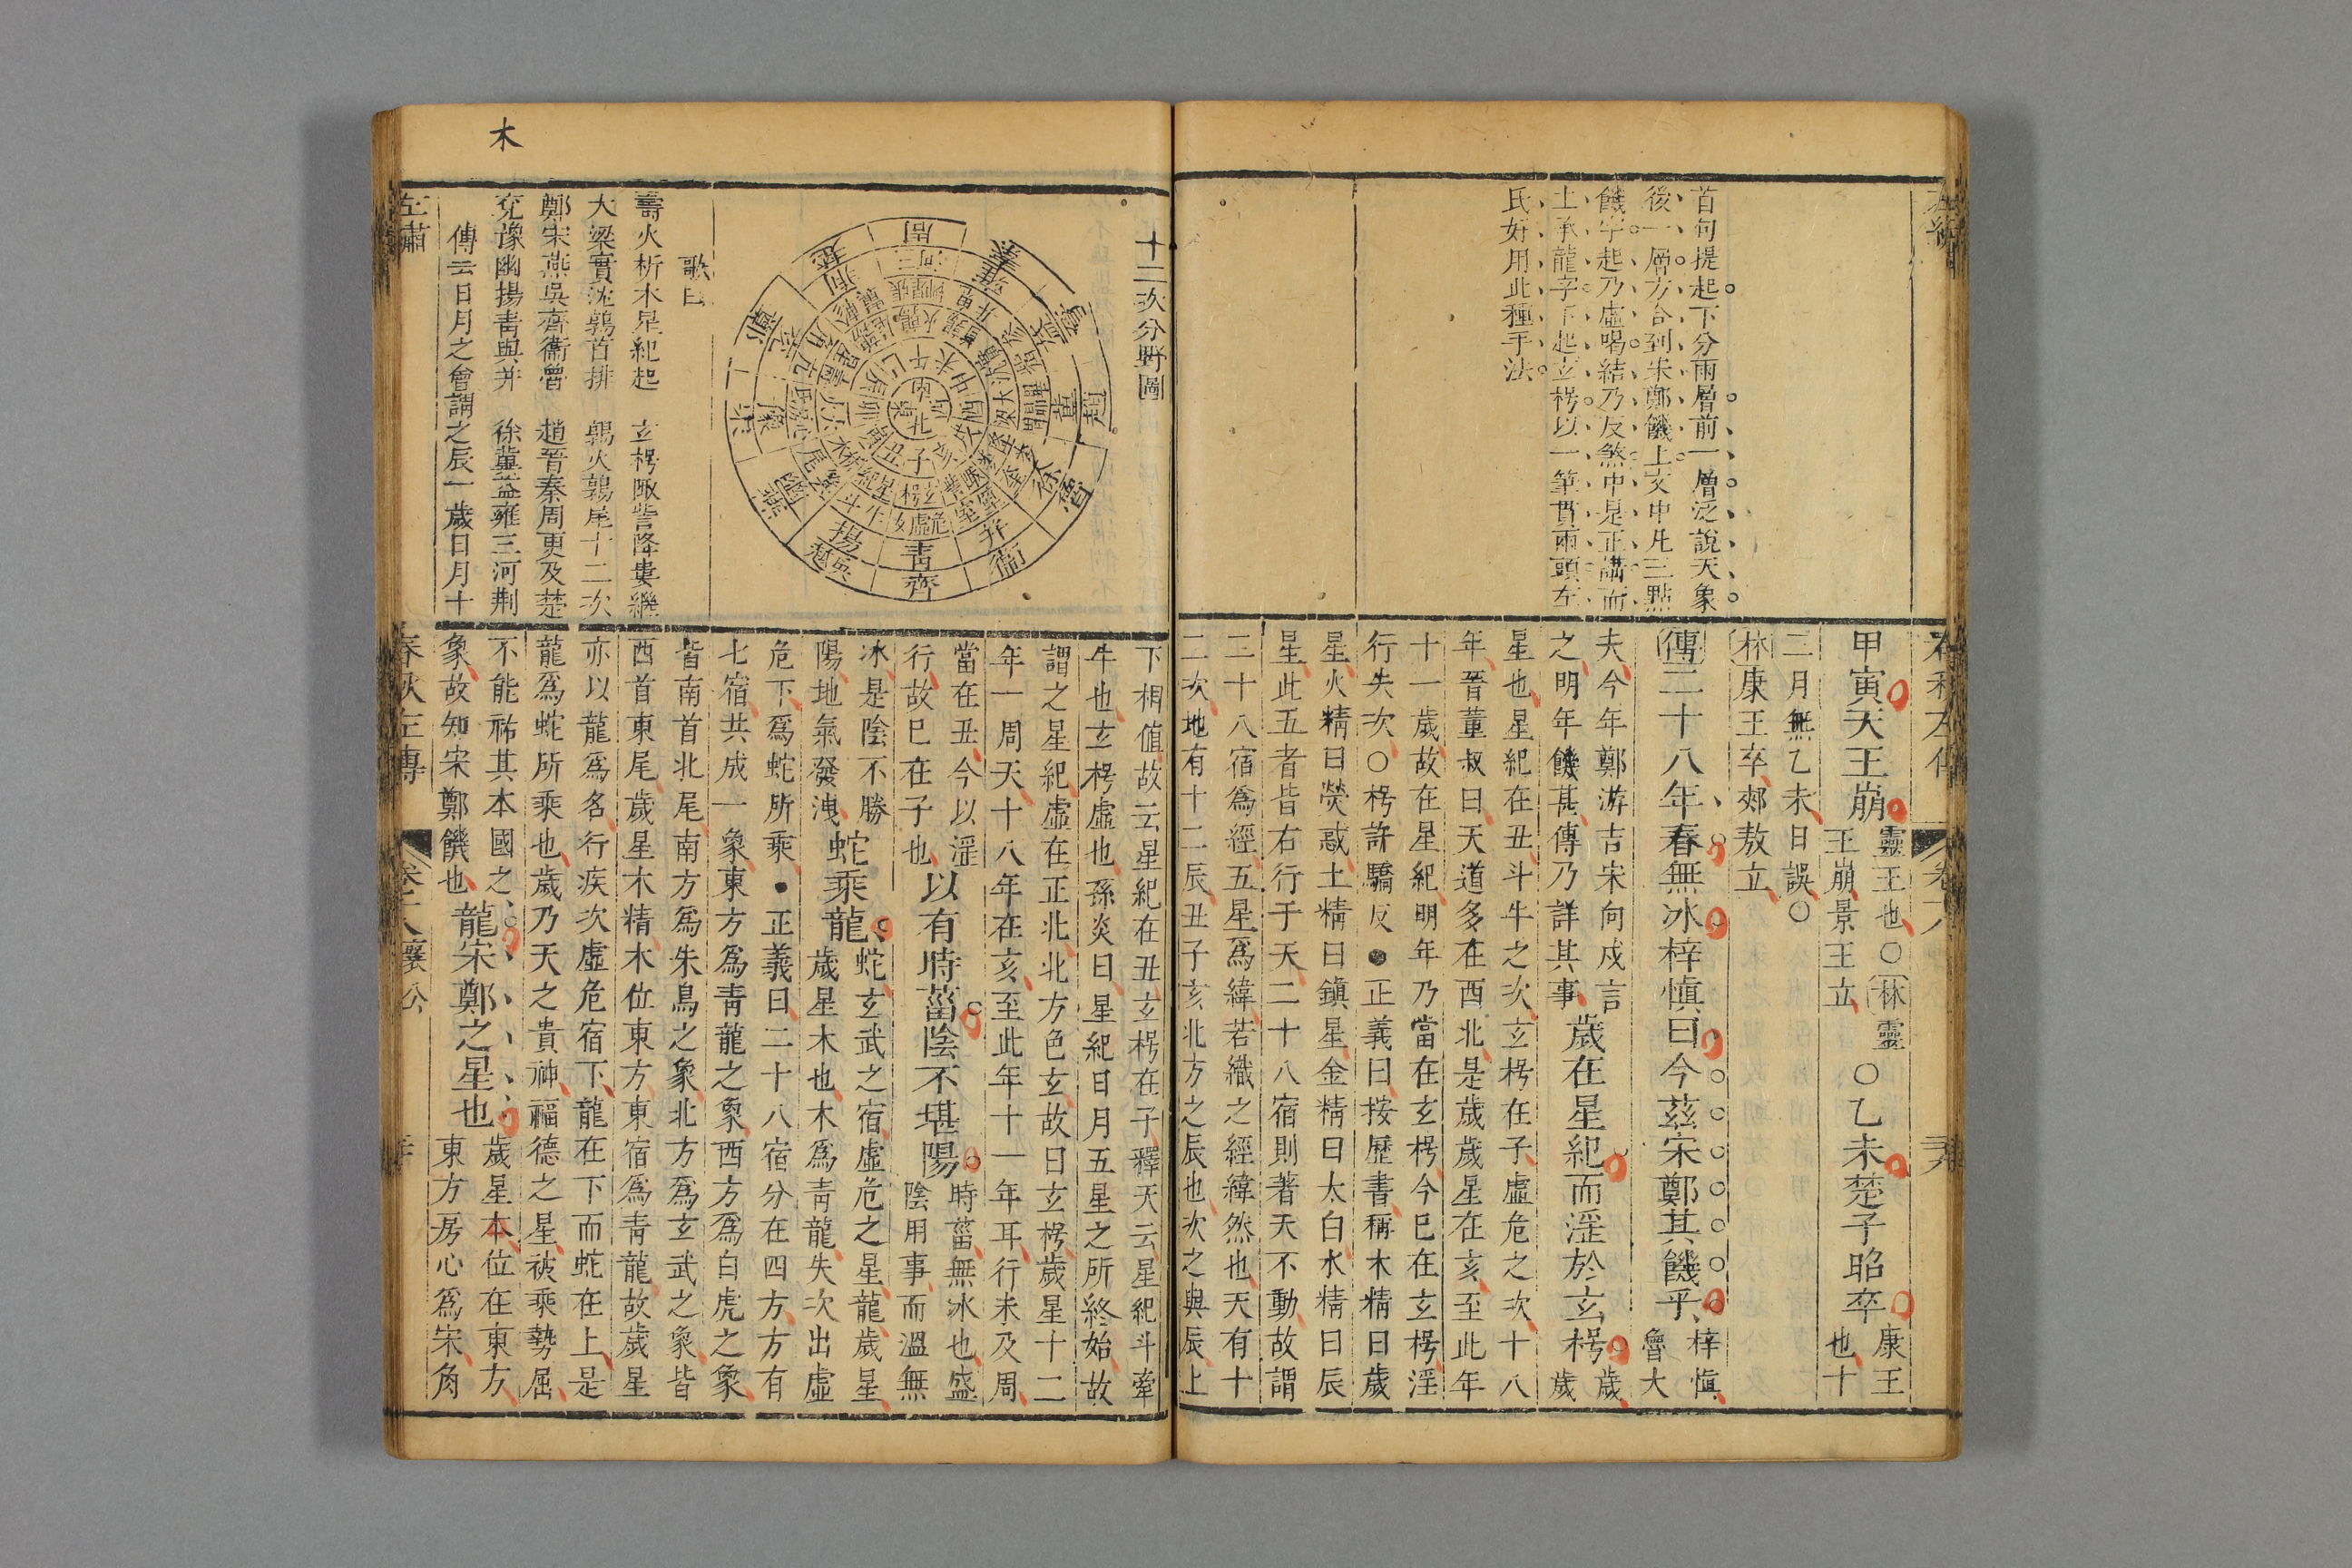 首句提起下分兩層前一層泛說天象
後一層方合到宋鄭饑上文中凡三點
饑字起乃虛喝結乃反煞中是正講而
上承龍字下起玄枵以一筆貫兩頭左
氏好用此種手法
甲寅天王崩
靈王也○林靈
王崩景王立
○乙未楚子昭卒
康王
也十
二月無乙未日誤○
林康王卒郟敖立
傳二十八年春無冰梓慎曰今茲宋鄭其饑乎
梓慎
魯大
夫今年鄭游吉宋向戌言
之明年饑甚傳乃詳其事
歲在星紀而淫於玄枵
歲
歲
星也星紀在丑斗牛之次玄枵在子虛危之次十八
年晉董叔曰天道多在西北是歲歲星在亥至此年
十一歲故在星紀明年乃當在玄枵今已在玄枵淫
行失次○枵許驕反●正義曰按歷書稱木精曰歲
星火精曰熒惑土精曰鎮星金精曰太白水精曰辰
星此五者皆右行于天二十八宿則著天不動故謂
二十八宿為經五星為緯若織之經緯然也天有十
二次地有十二辰丑子亥北方之辰也次之與辰上
十二次分野圖
歌曰
壽火析木星紀起 玄枵陬訾降婁繼
大梁實沈鶉首排 鶉火鶉尾十二次
鄭宋燕吳齊衞魯 趙晉秦周更及楚
兗豫幽揚青與并 徐冀益雍三河荆
傳云日月之會謂之辰一歲日月十
木
下相值故云星紀在丑玄枵在子釋天云星紀斗牽
牛也玄枵虛也孫炎曰星紀日月五星之所終始故
謂之星紀虛在正北北方色玄故曰玄枵歲星十二
年一周天十八年在亥至此年十一年耳行未及周
當在丑今以淫
行故已在子也
以有時菑陰不堪陽
時菑無冰也盛
陰用事而溫無
冰是陰不勝
陽地氣發洩
蛇乘龍
蛇玄武之宿虛危之星龍歲星
歲星木也木為青龍失次出虛
危下為蛇所乘●正義曰二十八宿分在四方方有
七宿共成一象東方為青龍之象西方為白虎之象
皆南首北尾南方為朱鳥之象北方為玄武之象皆
西首東尾歲星木精木位東方東宿為青龍故歲星
亦以龍為名行疾次虛危宿下龍在下而蛇在上是
龍為蛇所乘也歲乃天之貴神福德之星被乘勢屈
不能祐其本國之
象故知宋鄭饑也
龍宋鄭之星也
歲星本位在東方
東方房心為宋角
春秋左傳
襄公